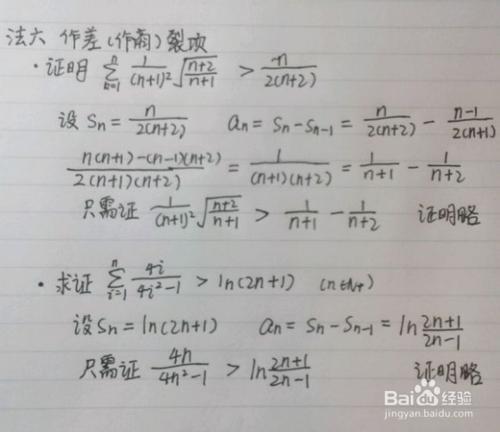 法六 作差(作商)裂项
·证明 ∑_{n=1}^{n} 1/(n+1)² √((n+2)/(n+1)) > n/(2(n+2))
设 Sn = n/(2(n+2))  an = Sn - Sn-1 = n/(2(n+2)) - (n-1)/(2(n+1))
(n(n+1)-(n-1)(n+2))/(2(n+1)(n+2)) = 1/((n+1)(n+2)) = 1/(n+1) - 1/(n+2)
只需证 1/(n+1)² √((n+2)/(n+1)) > 1/(n+1) - 1/(n+2)  证明略
·求证 ∑_{i=1}^{n} 4i/(4i²-1) > ln(2n+1) (n∈N+)
设Sn = ln(2n+1)  an = Sn - Sn-1 = ln (2n+1)/(2n-1)
只需证 4n/(4n²-1) > ln (2n+1)/(2n-1)  证明略
Baidu经验
jingyan.baidu.com